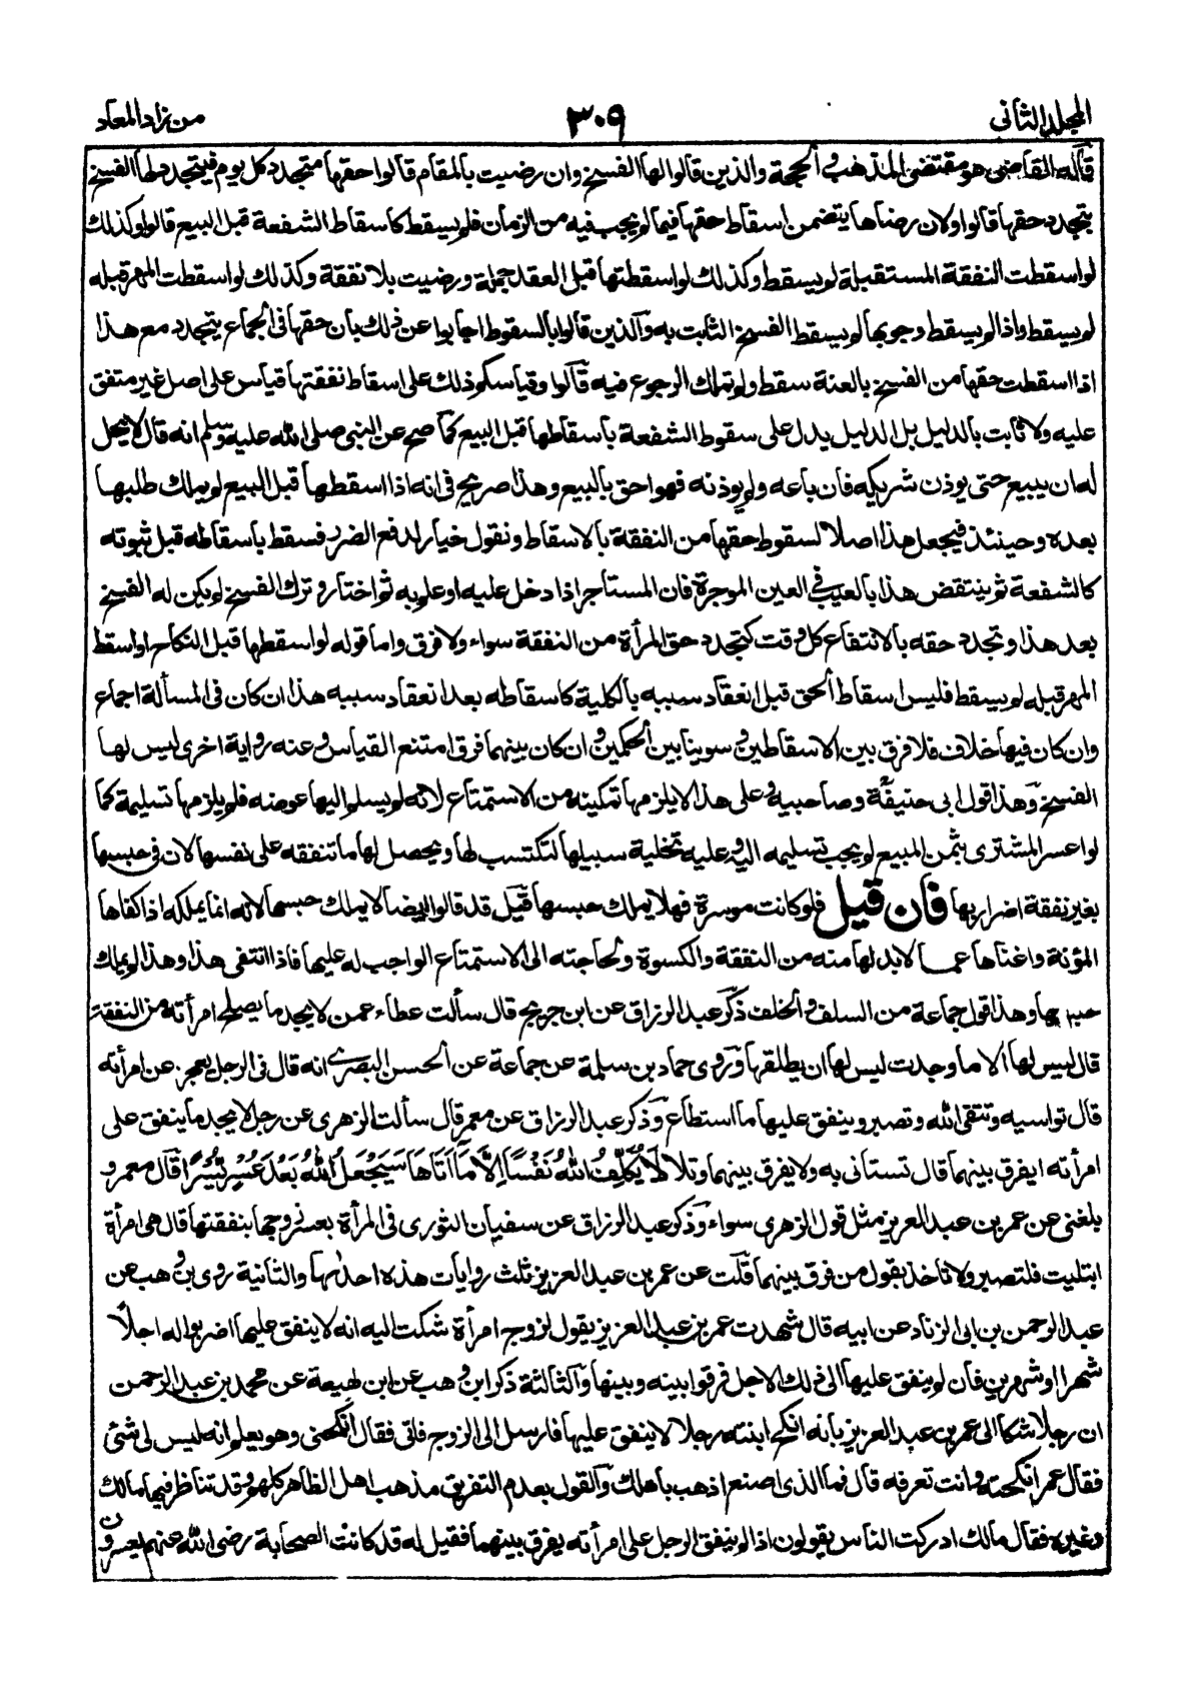 المجلد الثاني
٣٠٩
من زاد المعاد
قاله القاضى هو مقتضى المذهب والحجة والذين قالوا لها الفسخ وان رضيت بالمقام قالوا حقها متجدد كل يوم فيتجدد لها الفسخ
بتجدد حقها قالوا ولان رضاها يتضمن اسقاط حقها فيما لم يجب فيه من الزمان فلم يسقط كاسقاط الشفعة قبل البيع قالوا وكذلك
لو اسقطت النفقة المستقبلة لم يسقط وكذلك لو اسقطتها قبل العقد جملة ورضيت بلا نفقة وكذلك لو اسقطت المهر قبله
لم يسقط واذا لم يسقط وجوبها لم يسقط الفسخ الثابت به والذين قالوا بالسقوط اجابوا عن ذلك بان حقها فى الجماع يتجدد مع هذا
اذا اسقطت حقها من الفسخ بالعنة سقط ولم تملك الرجوع فيه قالوا وقياسكم ذلك على اسقاط نفقتها قياس على اصل غير متفق
عليه ولا ثابت بالدليل بل الدليل يدل على سقوط الشفعة باسقاطها قبل البيع كما صح عن النبى صلى الله عليه وسلم انه قال لا يحل
له ان يبيع حتى يوذن شريكه فان باعه ولم يوذنه فهو احق بالبيع وهذا صريح فى انه اذا اسقطها قبل البيع لم يملك طلبها
بعده وحينئذ فيجعل هذا اصلا لسقوط حقها من النفقة بالاسقاط ونقول خيار لدفع الضرر فسقط باسقاطه قبل ثبوته
كالشفعة ثم ينتقض هذا بالعيب في العين الموجرة فان المستاجر اذا دخل عليه او علم به ثم اختار وترك الفسخ لم يكن له الفسخ
بعد هذا وتجدد حقه بالانتفاع كل وقت كتجدد حق المرأة من النفقة سواء ولا فرق واما قوله لو اسقطها قبل النكاح او اسقط
المهر قبله لم يسقط فليس اسقاط الحق قبل انعقاد سببه بالكلية كاسقاطه بعد انعقاد سببه هذا ان كان فى المسألة اجماع
وان كان فيها خلاف فلا فرق بين الاسقاطين و سوينا بين الحكمين و ان كان بينهما فرق امتنع القياس و عنه رواية اخرى ليس لها
الفسخ وهذا قول ابى حنيفة وصاحبيه و على هذا لا يلزمها تمكينه من الاستمتاع لانه لم يسلم اليها عوضه فلم يلزمها تسليمه كما
لو اعسر المشترى بثمن المبيع لم يجب تسليمه اليه و عليه تخلية سبيلها لتكتسب لها ويحصل لها ما تنفقه على نفسها لان فى حبسها
بغير نفقة اضرار بها فان قيل فلو كانت موسرة فهلا يملك حبسها قيل قد قالوا ايضا لا يملك حبسها لانه انما يملكه اذا كفاها
المؤنة واغناها عما لابد لها منه من النفقة والكسوة و لحاجته الى الاستمتاع الواجب له عليها فاذا انتفى هذا وهذا لم يملك
حبسها وهذا قول جماعة من السلف و الخلف ذكر عبد الرزاق عن ابن جريج قال سألت عطاء عمن لا يجد ما يصلح امرأته من النفقة
قال ليس لها الا ما وجدت ليس لها ان يطلقها وروى حماد بن سلمة عن جماعة عن الحسن البصرى انه قال فى الرجل يعجز عن امرأته
قال تواسيه وتتقى الله وتصبر وينفق عليها ما استطاع وذكر عبد الرزاق عن معمر قال سألت الزهرى عن رجل لا يجد ما ينفق على
امرأته ايفرق بينهما قال تستانى به ولا يفرق بينهما وتلا لَا يُكَلِّفُ اللهُ نَفْسًا اِلَّا مَا اٰتَاهَا سَيَجْعَلُ اللهُ بَعْدَ عُسْرٍ يُّسْرًا قال معمر و
بلغنى عن عمر بن عبد العزيز مثل قول الزهرى سواء وذكر عبد الرزاق عن سفيان الثورى فى المرأة يعسر زوجها بنفقتها قال هى امرأة
ابتليت فلتصبر ولا تأخذ بقول من فرق بينهما قلت عن عمر بن عبد العزيز ثلث روايات هذه احدٰىها والثانية روى بن وهب عن
عبد الرحمن بن ابى الزناد عن ابيه قال شهدت عمر بن عبد العزيز يقول لزوج امرأة شكت اليه انه لا ينفق عليها اضربوا له اجلاً
شهرا او شهرين فان لم ينفق عليها الى ذلك الاجل فرقوا بينه وبينها والثالثة ذكر ابن وهب عن ابن لهيعة عن محمد بن عبد الرحمن
ان رجلا شكا الى عمر بن عبد العزيز بانه انكح ابنته رجلا لا ينفق عليها فارسل الى الزوج فاتى فقال انكحنى وهو يعلم انه ليس لى شئ
فقال عمر انكحته وانت تعرفه قال فما الذى اصنع اذهب باهلك والقول بعدم التفريق مذهب اهل الظاهر كلهم وقد تناظر فيها مالك
وغيره فقال مالك ادركت الناس يقولون اذا لم ينفق الرجل على امرأته يفرق بينهما فقيل له قد كانت الصحابة رضى الله عنهم يعسرون و